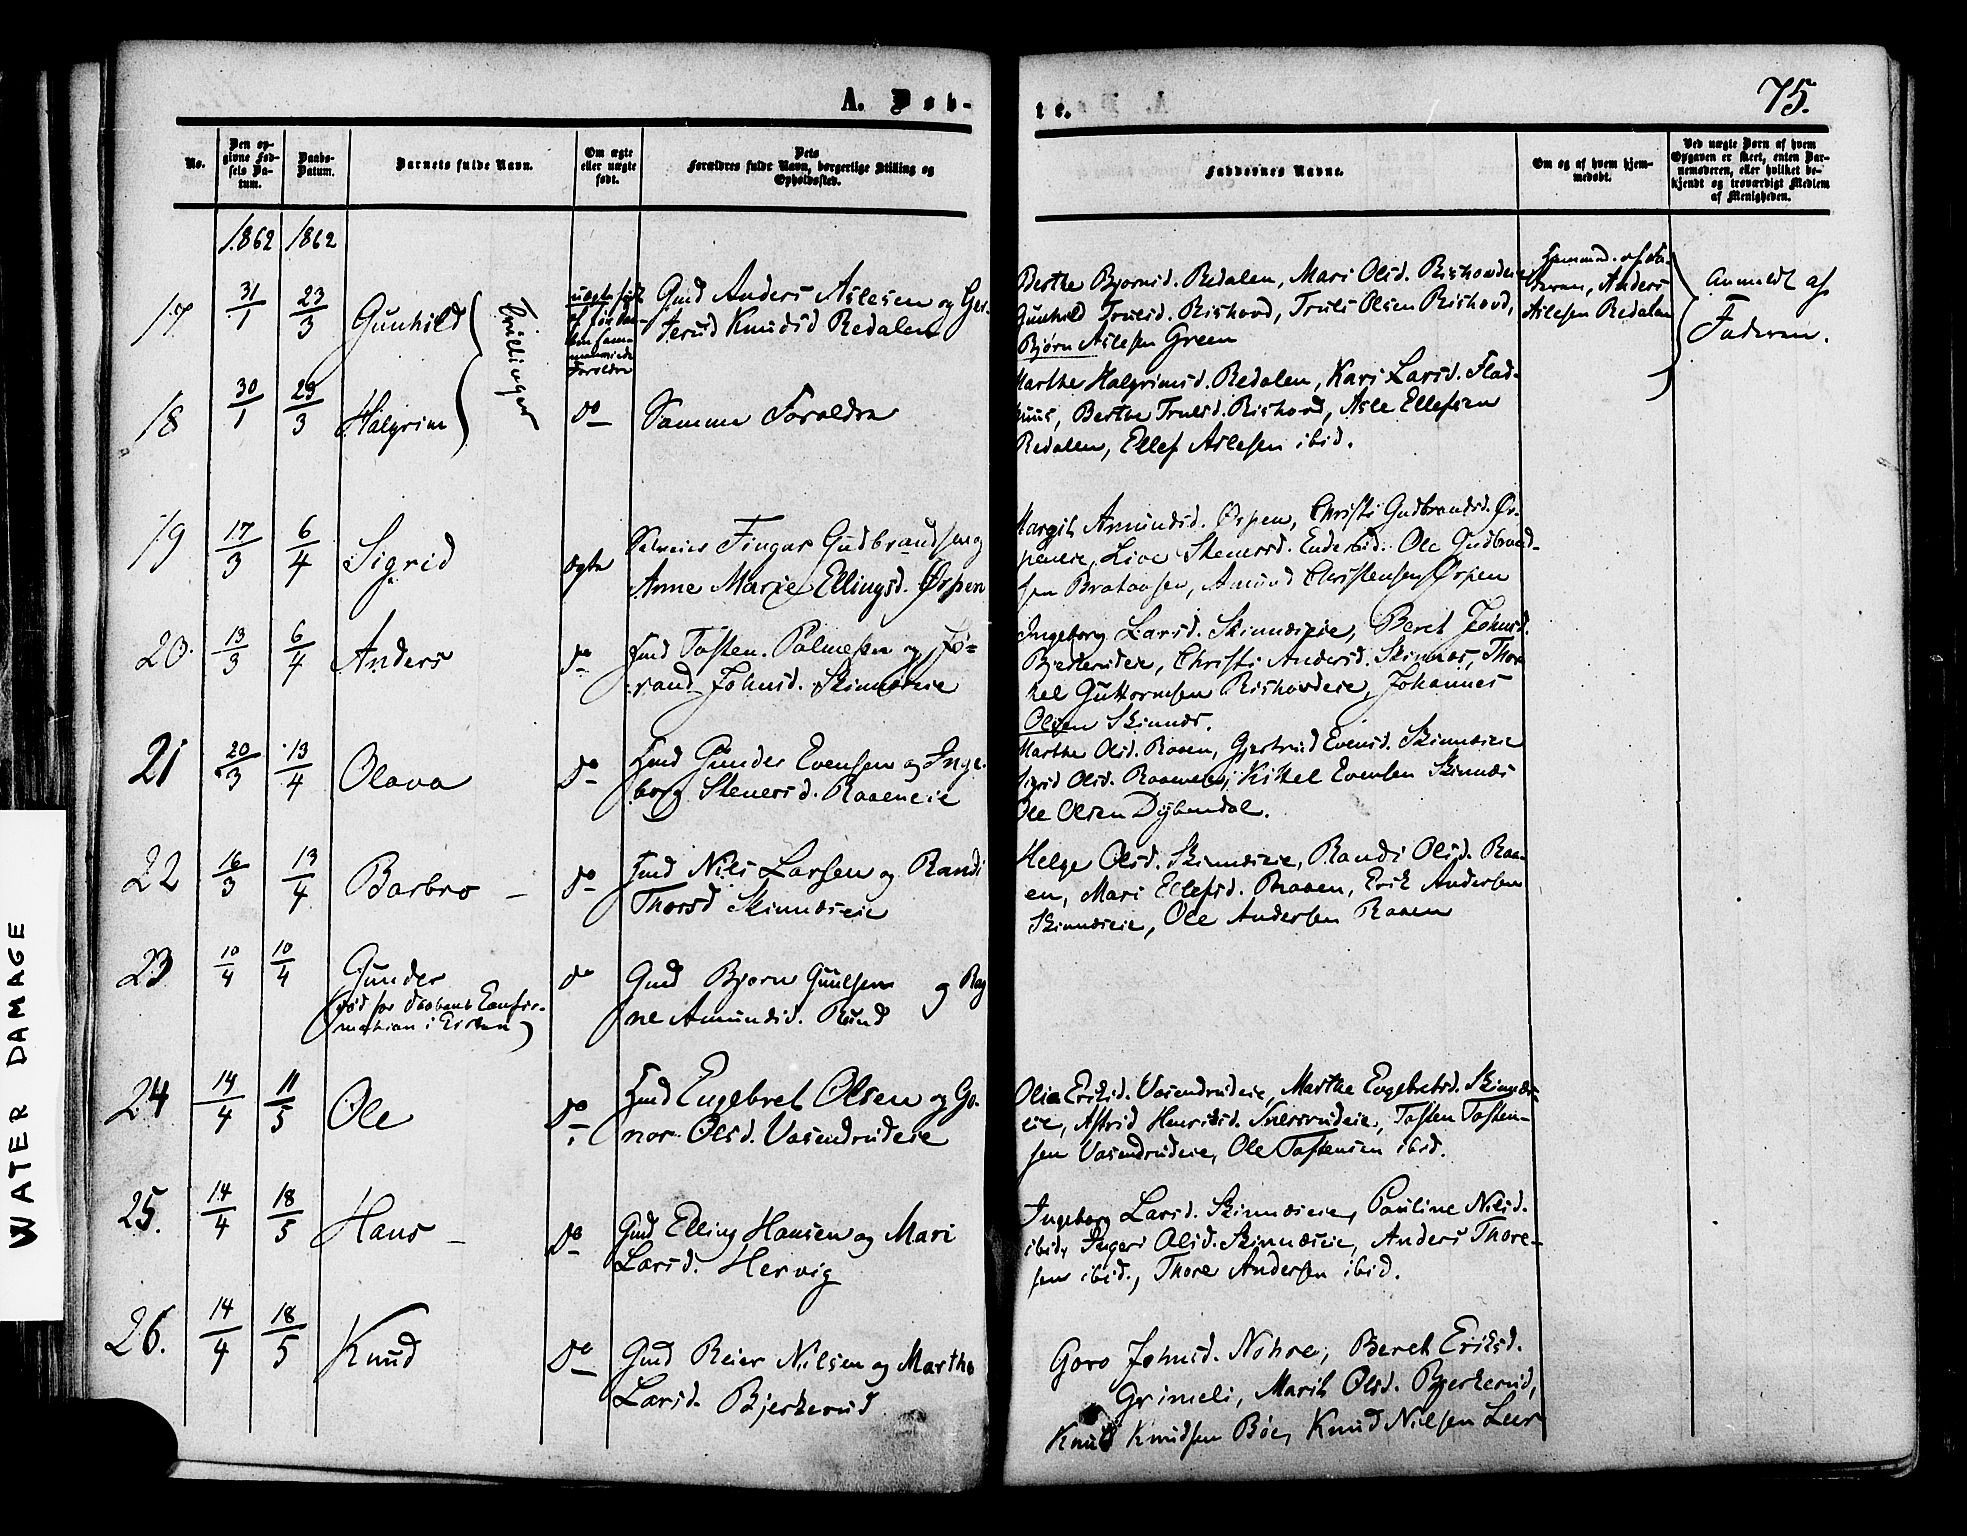 A. Døb-
te.
75.
No.
Den op-
givne Fød-
sels Da-
tum.
Daabs-
Datum.
Barnets fulde Navn.
Om ægte
eller uægte
født.
Dets
Forældres fulde Navn, borgerlige Stilling og
Opholdssted.
Faddernes Navne.
Om og af hvem hjem-
medøbt.
Ved uægte Børn af hvem
Opgaven er skeet, enten Bar-
nemoderen, eller hvilket be-
kjendt og troværdigt Medlem
af Menigheden.
1862 1862
17 31/1 23/3 Gunhild
Tvillinger
uægte født
Forældre
Gmd Anders Aslesen og Gjer-
terud Knudsd Redalen
Berthe Bjornsd. Redalen, Mari Olsd. Rishovdeie
Gunhild Trulsd. Rishovd, Truls Olsen Rishovd,
Bjørn Aslesen Green
Hjemmed. af Fa-
deren, Anders
Aslesen Redalen
Anmeldt af
Faderen.
18 30/1 23/3 Halgrim do Samme Forældre
Marthe Halgrimsd. Redalen, Kari Larsd. Flad-
huus, Berthe Trulsd. Rishovd, Asle Ellefsen
Redalen, Ellef Aslesen ibid.
19 17/3 6/4 Sigrid ægte
Selveier Fingar Gudbrandsen og
Anne Marie Ellingsd. Ørpen
Margit Amundsd. Ørpen, Christi Gudbrandsd. Ør-
peneie, Live Stenersd. Enderud. Ole Gudbrand-
sen Brataasen, Amund Christensen Ørpen
20. 13/3 6/4 Anders do
Hmd Tosten Palmesen og Jø-
rand Johnsd. Skinnæseie
Ingeborg Larsd. Skinnæseie, Beret Johnsd.
Bjerkerudeie, Christi Andersd. Skinnæs, Thor-
kel Guttormsen Rishovdeie, Johannes
Olsen Skinnæs.
21 20/3 13/4 Olava do
Hmd Gunder Evensen og Inge-
borg Stenersd. Raaeneie
Marthe Olsd. Raaen, Gjertrud Evensd. Skinnæseie
Sigrid Olsd. Raaeneie, Kittel Evensen Skinnæs
Ole Olsen Dybendal.
22 16/3 13/4 Barbro - do
Hmd Nils Larsen og Randi
Thorsd Skinnæseie
Helge Olsd. Skinnæseie, Randi Olsd. Raa-
en, Mari Ellefsd. Raaen, Erik Andersen
Skinnæseie, Ole Andersen Raaen
23 10/4 10/4 Gunder
(død før Daabens Confir-
mation i Kirken)
do
Gmd Bjorn Guulsen og Rag-
ne Amundsd. Rund
24 14/4 11/5 Ole do
Hmd Engebret Olsen og Go-
nor Olsd. Vasendrudeie
Olia Eriksd. Vasendrudeie, Marthe Engebretsd. Skinnæs-
eie, Astrid Henriksd. Snersrudeie, Tosten Tosten-
sen Vasendrudeie, Ole Tostensen ibid.
25. 14/4 18/5 Hans - do
Gmd Elling Hansen og Mari
Larsd. Hervig
Ingeborg Larsd. Skinnæseie, Pauline Nilsd.
ibid, Ingeri Olsd. Skinnæseie, Anders Thore-
sen ibid., Thore Andersen ibid.
26. 14/4 18/5 Knud do
Gmd Reier Nilsen og Marthe
Larsd. Bjerkerud
Goro Johnsd. Nohre, Beret Eriksd.
Grimeli, Marit Olsd. Bjerkerud,
Knud Knudsen Bøe, Knud Nilsen Leer
WATER DAMAGE